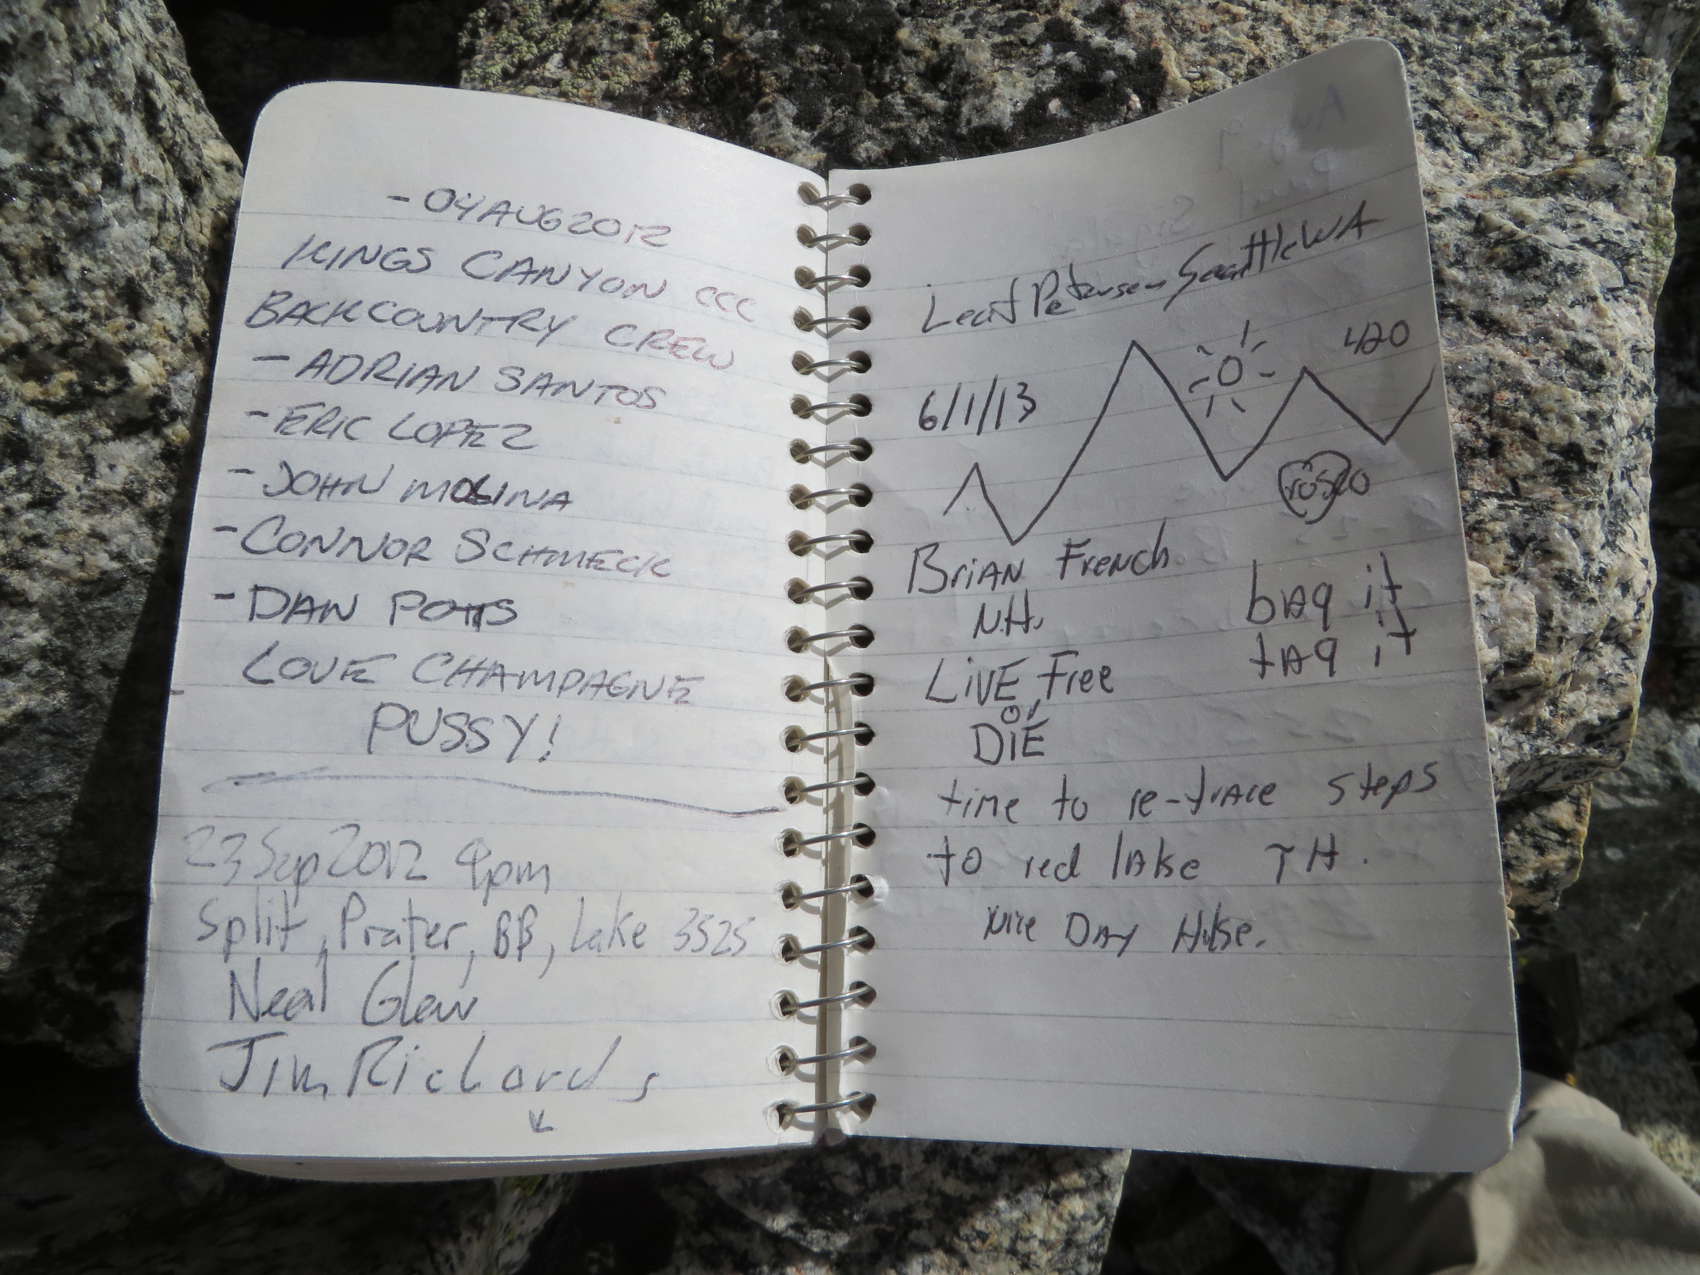 - 04AUG2012
KINGS CANYON CCC
BACKCOUNTRY CREW
- ADRIAN SANTOS
- ERIC LOPEZ
- JOHN MOLINA
- CONNOR SCHMECK
- DAN POTTS
LOVE CHAMPAGNE
PUSSY!
23 Sep 2012 4pm
Split, Prater, BB, Lake 3525
Neal Glew
Jim Richards
Leaf Peterson Seattle WA
420
6/1/13
Brian French
NH.
bag it
tag it
Live Free
or
DIE
time to re-trace steps
to red lake TH.
Nice Day Hike.